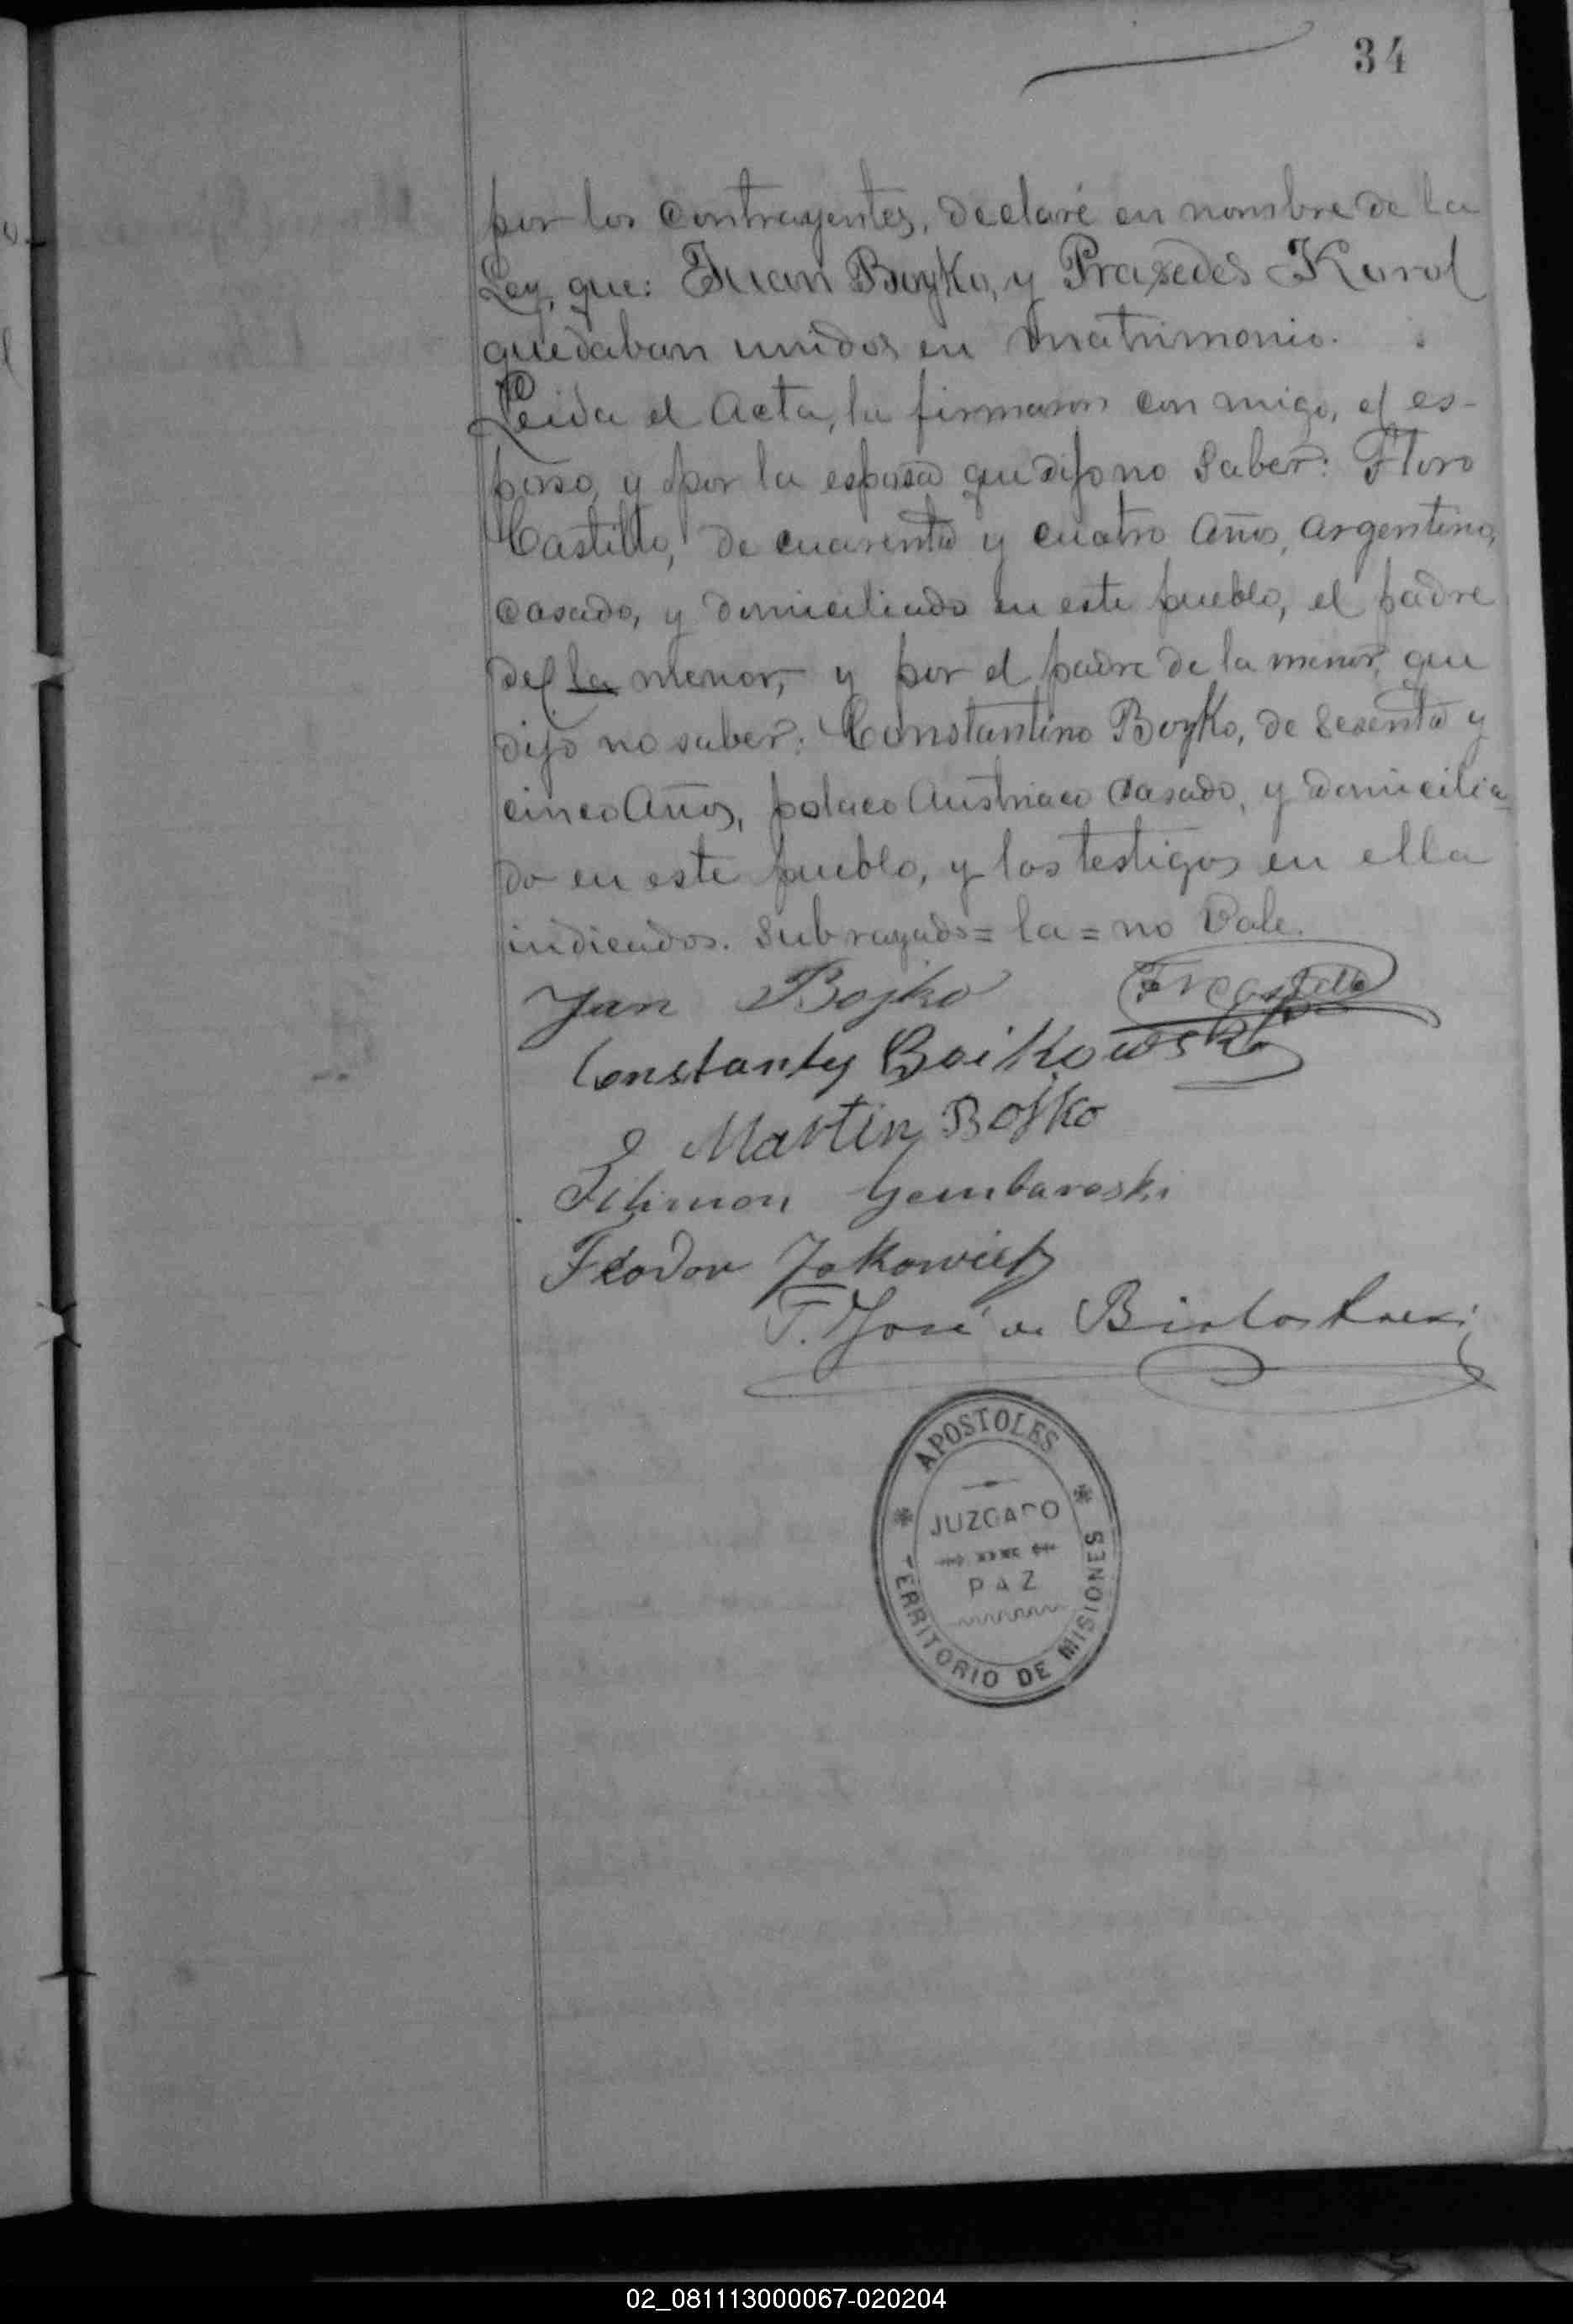 34
por los contrayentes, declaré en nombre de la
Ley, que: Juan Boyko, y Praxedes Korol
quedaban unidos en matrimonio.
Leida el Acta, la firmaron con migo, el es-
poso, y por la esposa que dijo no saber: Floro
Castillo, de cuarenta y cuatro años, argentino,
casado, y domiciliado en este pueblo, el padre
del la menor, y por el padre de la menor, que
dijo no saber: Constantino Boyko, de sesenta y
cinco años, polaco Austriaco casado, y domicilia-
do en este pueblo, y los testigos en ella
indicados. Subrayado = la = no Vale.
Jan Bojko Castillo
Constanty Boikowski
Martin Bojko
Filimon Gembaroski
Feodor
José de
APOSTOLES
JUZGADO
DE
PAZ
TERRITORIO DE MISIONES
02_081113000067-020204